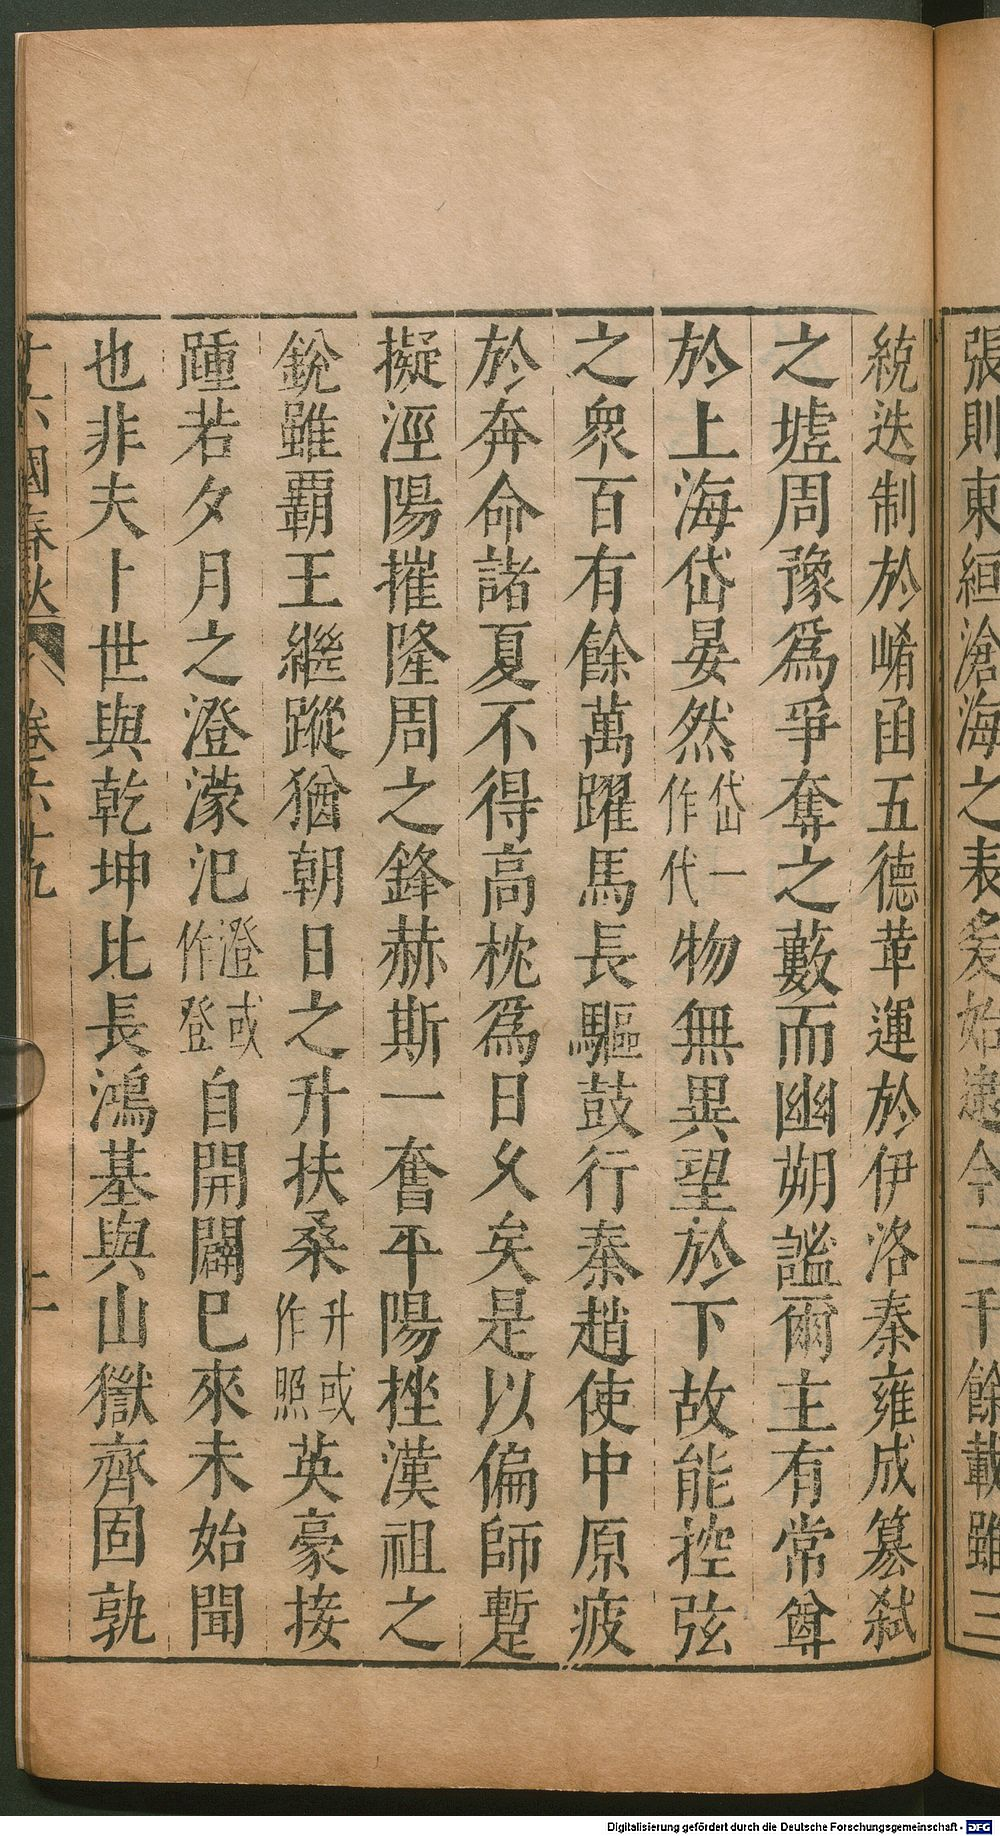 張則東絙滄海之表爰始逮今二千餘載雖三
統迭制於崤函五德革運於伊洛秦雍成篡弑
之墟周豫爲爭奪之藪而幽朔謐爾主有常尊
於上海岱晏然岱一作代物無異望於下故能控弦
之衆百有餘萬躍馬長驅鼓行秦趙使中原疲
於奔命諸夏不得高枕爲日久矣是以偏師暫
擬涇陽摧隆周之鋒赫斯一奮平陽挫漢祖之
銳雖霸王繼蹤猶朝日之升扶桑升或作照英豪接
踵若夕月之澄濛汜澄或作登自開闢已來未始聞
也非夫卜世與乾坤比長鴻基與山嶽齊固孰
十六國春秋 卷六十九 十一
Digitalisierung gefördert durch die Deutsche Forschungsgemeinschaft - DFG